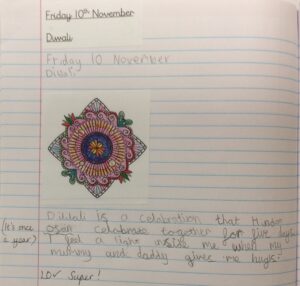 Friday 10th November
Diwali
Friday 10 November
Diwali
Diwali is a celebration that Hindus
(It's once a year)
celebrate together for five days
I feel a light inside me when my
mummy and daddy gives me hugs.
LO✓ Super!